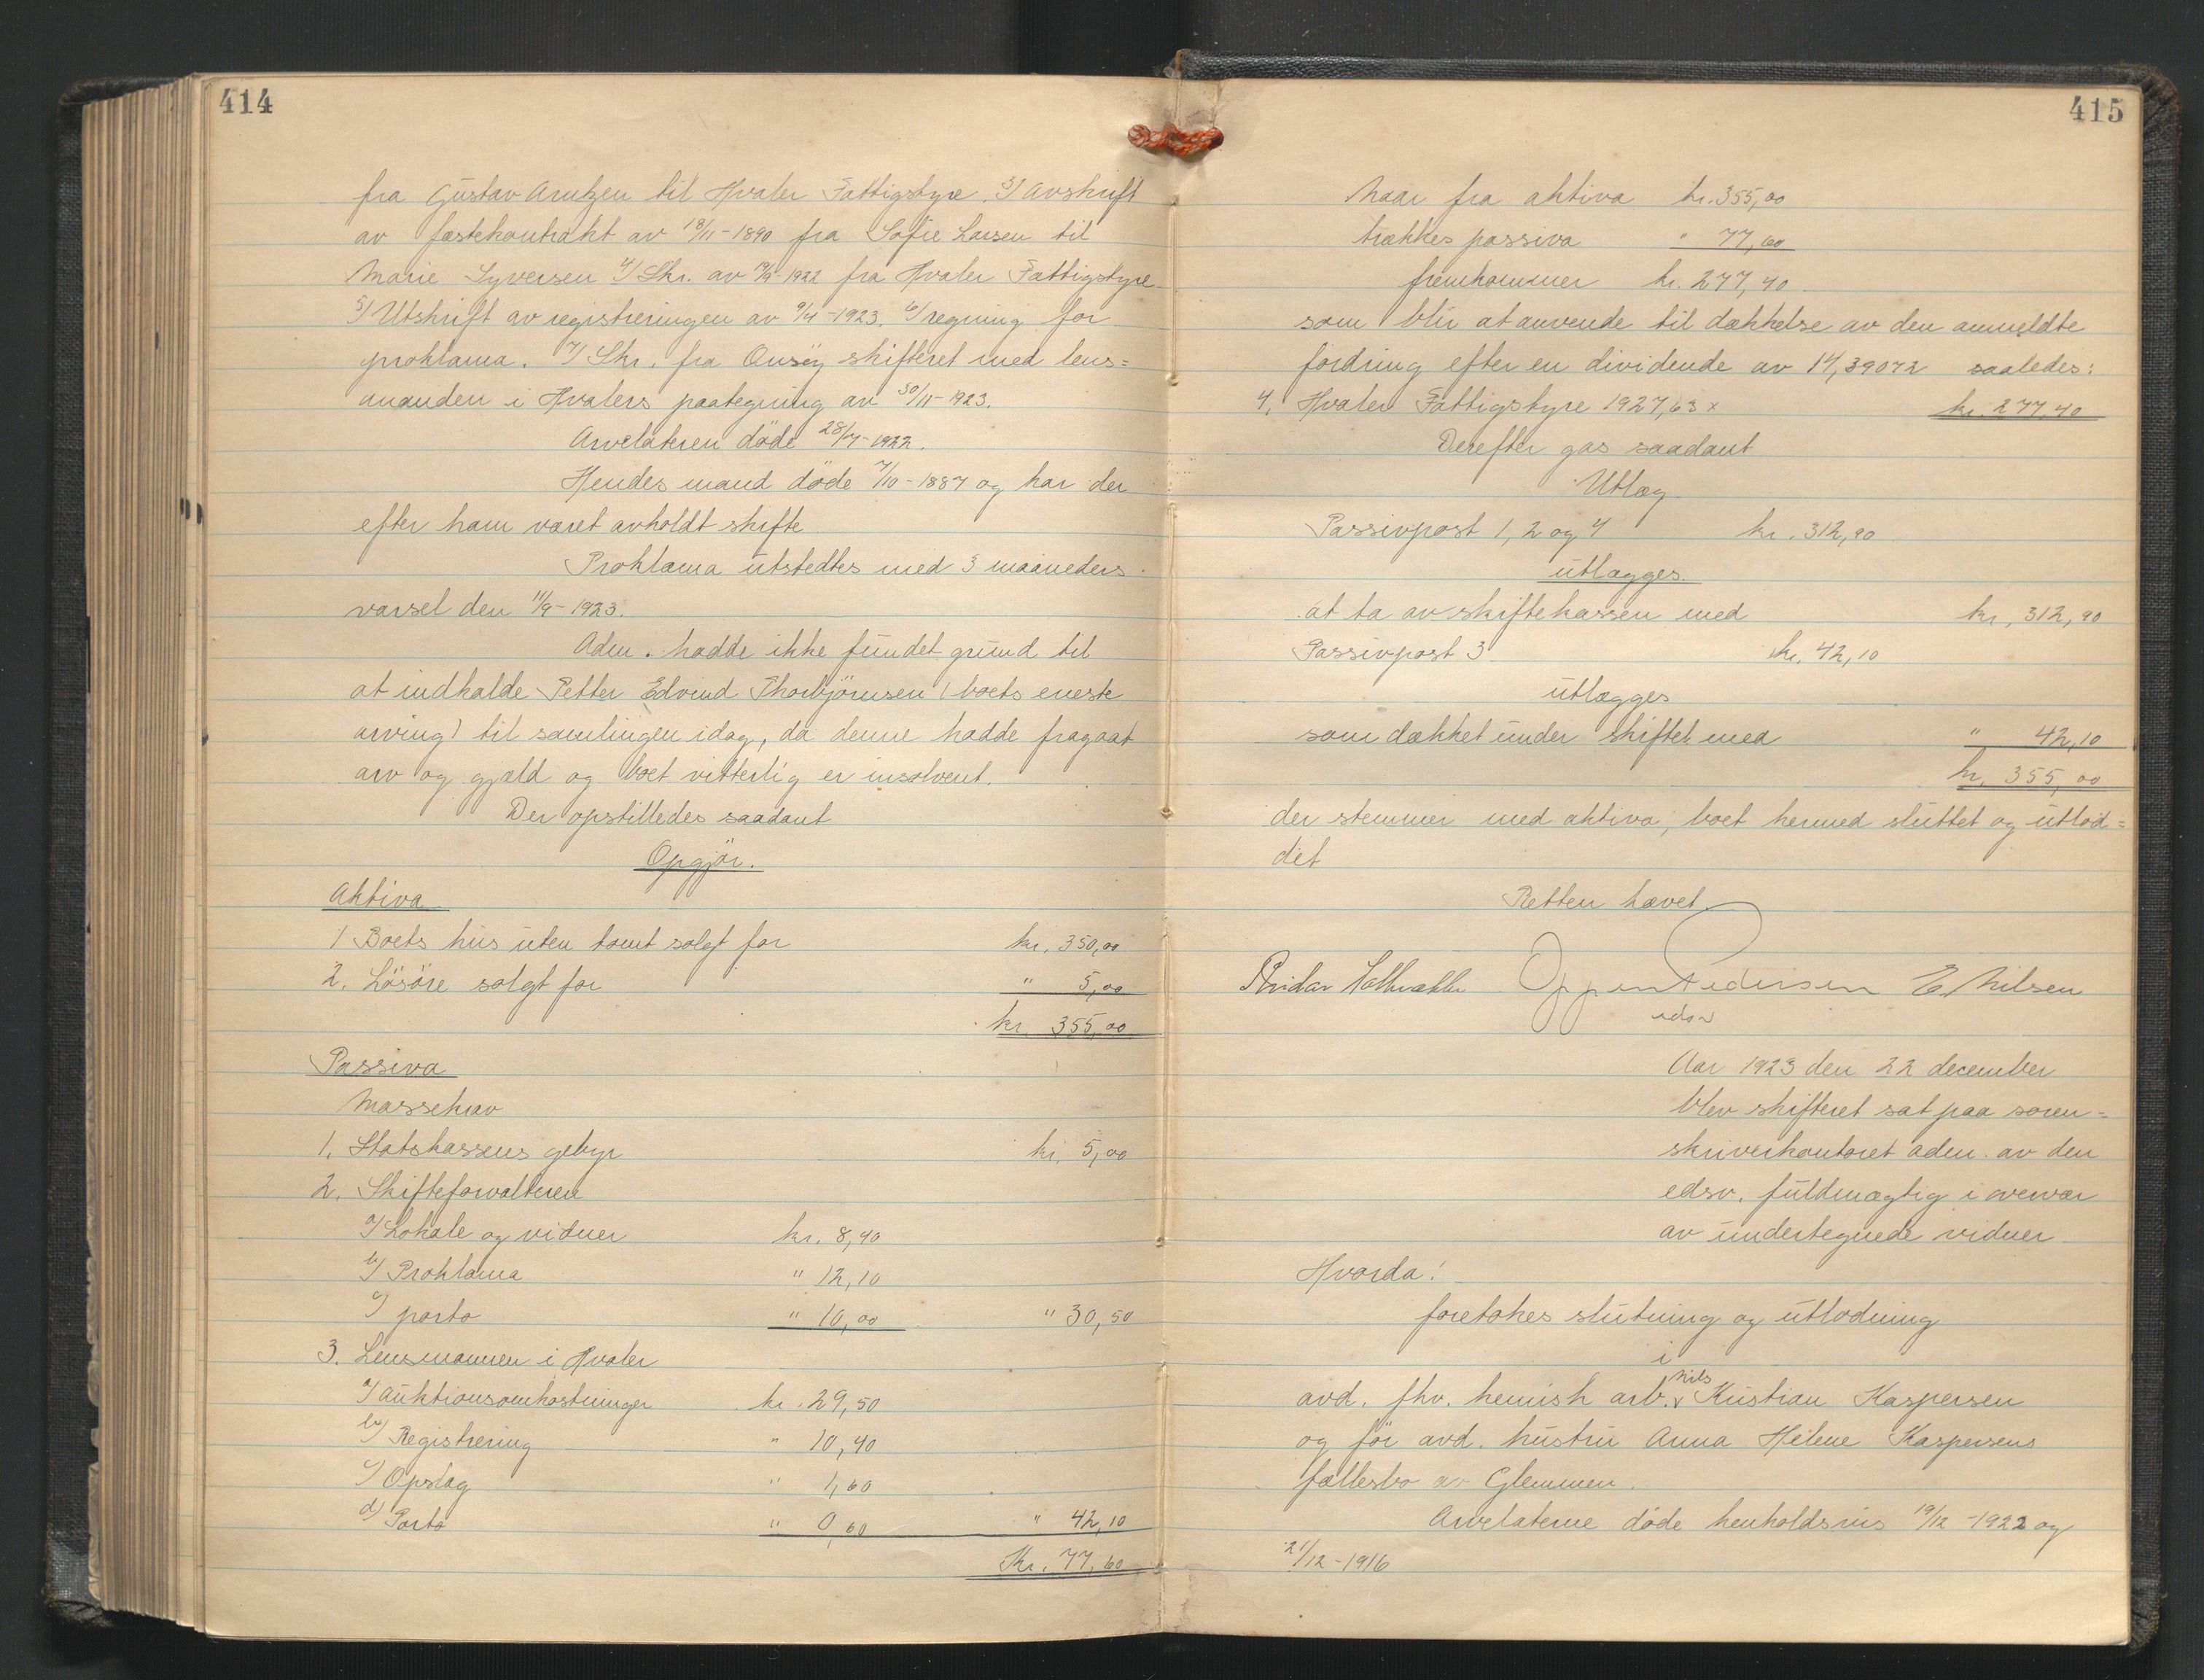 414
fra Gustav Arntzen til Hvaler Fattigstyre. 3/ Avskrift
av fæstekontrakt av 18/11-1890 fra Sofie Larsen til
Marie Syversen 4/ Skr. av 19/9-1922 fra Hvaler Fattigstyre
5/ Utskrift av registreringen av 9/4-1923. 6/ regning for
proklama. 7/ Skr. fra Onsöy skifteret med lens=
manden i Hvalers paategning av 30/11-1923.
Arvelateren döde 28/7-1922.
Hendes mand döde 7/10-1887 og har der
efter ham været avholdt skifte
Proklama utstedtes med 3 maaneders
varsel den 11/9-1923.
Adm. hadde ikke fundet grund til
at indkalde Petter Edvind Thorbjörnsen (boets eneste
arving) til samlingen idag, da denne hadde fragaat
arv og gjæld og boet vitterlig er insolvent.
Der opstilledes saadant
Opgjör.
Aktiva
1 Boets hus uten tomt solgt for kr. 350,00
2. Lösöre solgt for " 5,00
kr. 355,00
Passiva
Massekrav
1. Statskassens gebyr kr. 5,00
2. Skifteforvalteren
a/ Lokale og vidner kr. 8,40
b/ Proklama " 12,10
c/ porto " 10,00 " 30,50
3. Lensmannen i Hvaler
a/ auktionsomkostninger kr. 29,50
b/ Registrering " 10,40
c/ Opslag " 1,60
d/ Porto " 0,60 " 42,10
Kr. 77,60
415
Naar fra aktiva kr. 355,00
trækkes passiva " 77,60
fremkommer kr. 277,40
som blir at anvende til dækkelse av den anmeldte
fordring efter en dividende av 14,39072 saaledes:
4. Hvaler Fattigstyre 1927,63 x kr. 277,40
Derefter gas saadant
Utlæg
Passivpost 1, 2 og 4 kr. 312,90
utlægges
at ta av skiftekassen med kr. 312,90
Passivpost 3 kr. 42,10
utlægges
som dækket under skiftet med " 42,10
kr. 355,00
der stemmer med aktiva, boet hermed sluttet og utlod=
det
Retten hævet
Oppen Pedersen E. Nilsen
edsv
Aar 1923 den 22 december
blev skifteret sat paa soren=
skriverkontoret adm. av den
edsv. fuldmægtig i overvær
av undertegnede vidner
Hvorda!
foretokes slutning og utlodning
i
avd. fhv. kemisk arb. Nils Kristian Kaspersen
og för avd. hustru Anna Helene Kaspersens
fællesbo av Glemmen.
Arvelaterne döde henholdsvis 19/12-1922 og
21/12-1916